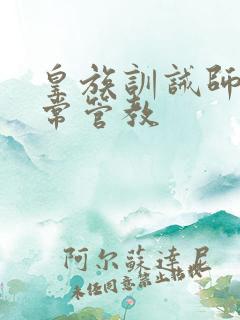 皇族訓誡師
常管教
阿尔蘇達尼
未经同意禁止转载